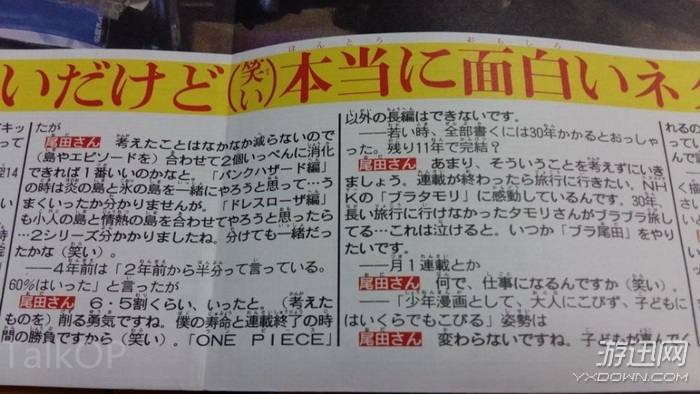 いだけど(笑い)本当に面白いネタ
たが
尾田さん 考えたことはなかなか減らないので
(島やエピソードを)合わせて2個いっぺんに消化
できれば1番いいのかなと。「パンクハザード編」
の時は炎の島と氷の島を一緒にやろうと思って…う
まくいったか分かりませんが。「ドレスローザ編」
も小人の島と情熱の島を合わせてやろうと思ったら
…2シリーズ分かかりましたね。分けても一緒だっ
たかな(笑い)。
――4年前は「2年前から半分って言っている。
60%はいった」と言ったが
尾田さん 6・5割くらい、いったと。(考えた
ものを)削る勇気ですね。僕の寿命と連載終了の時
間の勝負ですから(笑い)。「ONE PIECE」
以外の長編はできないです。
――若い時、全部書くには30年かかるとおっしゃ
った。残り11年で完結?
尾田さん あまり、そういうことを考えずにいき
ましょう。連載が終わったら旅行に行きたい。NH
Kの「ブラタモリ」に感動しているんです。30年、
長い旅行に行けなかったタモリさんがブラブラ旅し
てる…これは泣けると。いつか「ブラ尾田」をやり
たいです。
――月1連載とか
尾田さん 何で、仕事になるんですか(笑い)。
――「少年漫画として、大人にこびず、子どもに
はいくらでもこびる」姿勢は
尾田さん 変わらないですね。子どもが
TalkOP
游迅网
YXDOWN.COM